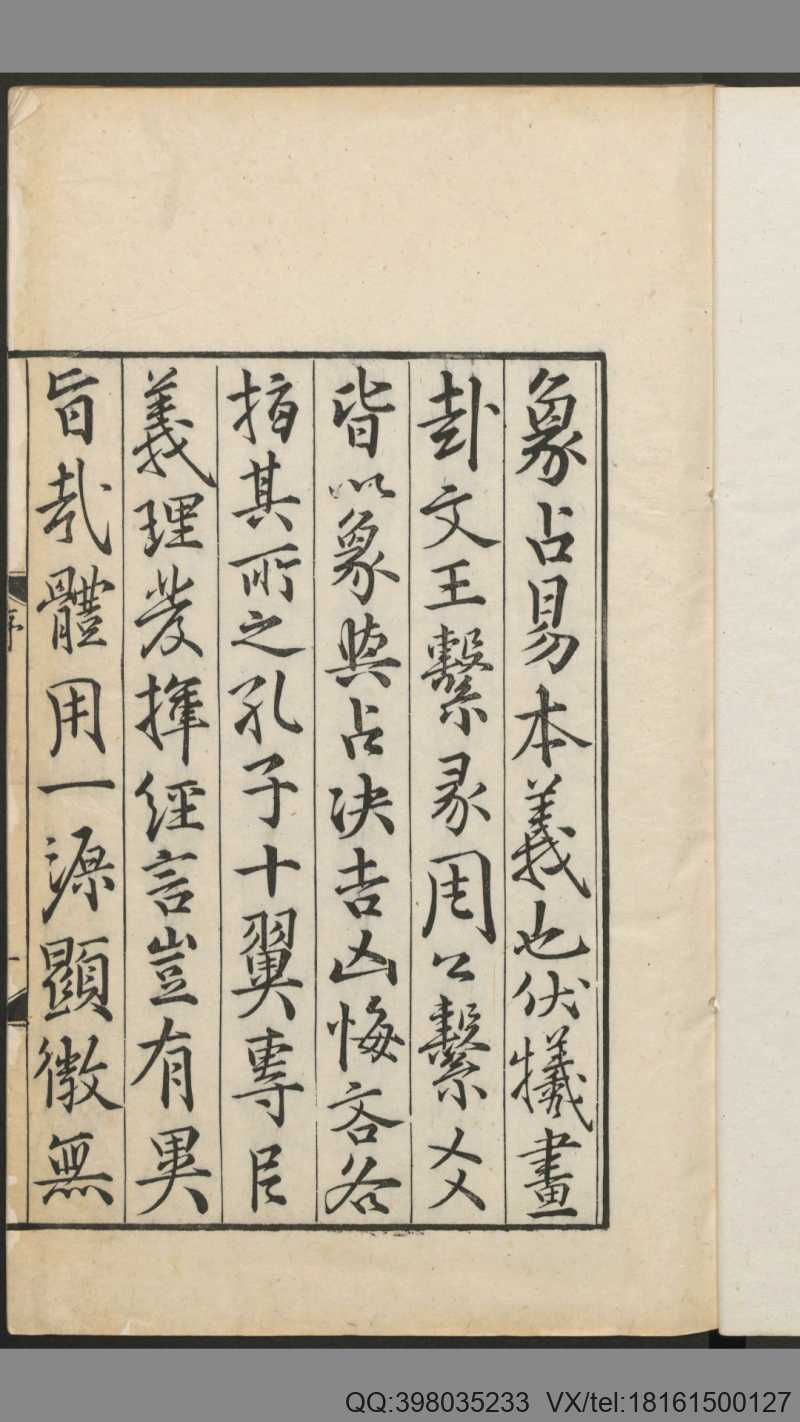 象占易本義也伏犧畫
卦文王繫彖周公繫爻
皆以象與占决吉凶悔吝各
指其所之孔子十翼專㠯
義理發揮經言豈有異
旨哉體用一源顯微無
序
QQ:398035233 VX/tel:18161500127